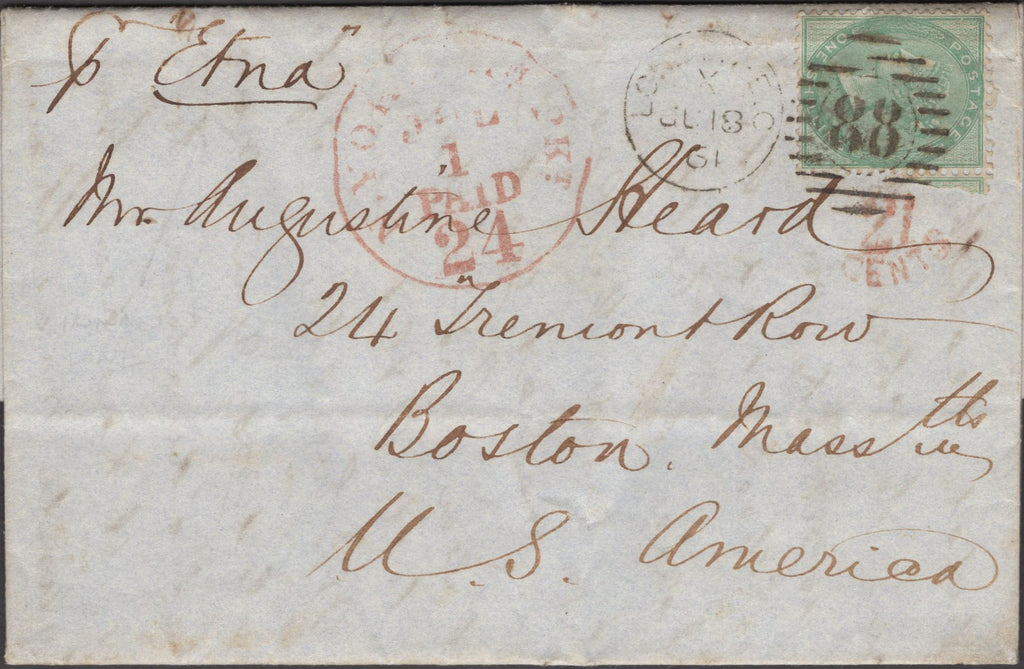 p "Etna"
N. YORK AM. PKT.
JUL
1
PAID
24
LO
JU 18
61
88
POSTAGE
ONE
21
CENTS
Mr. Augustine Heard
24 Tremont Row
Boston. Mass tts
U. S. America